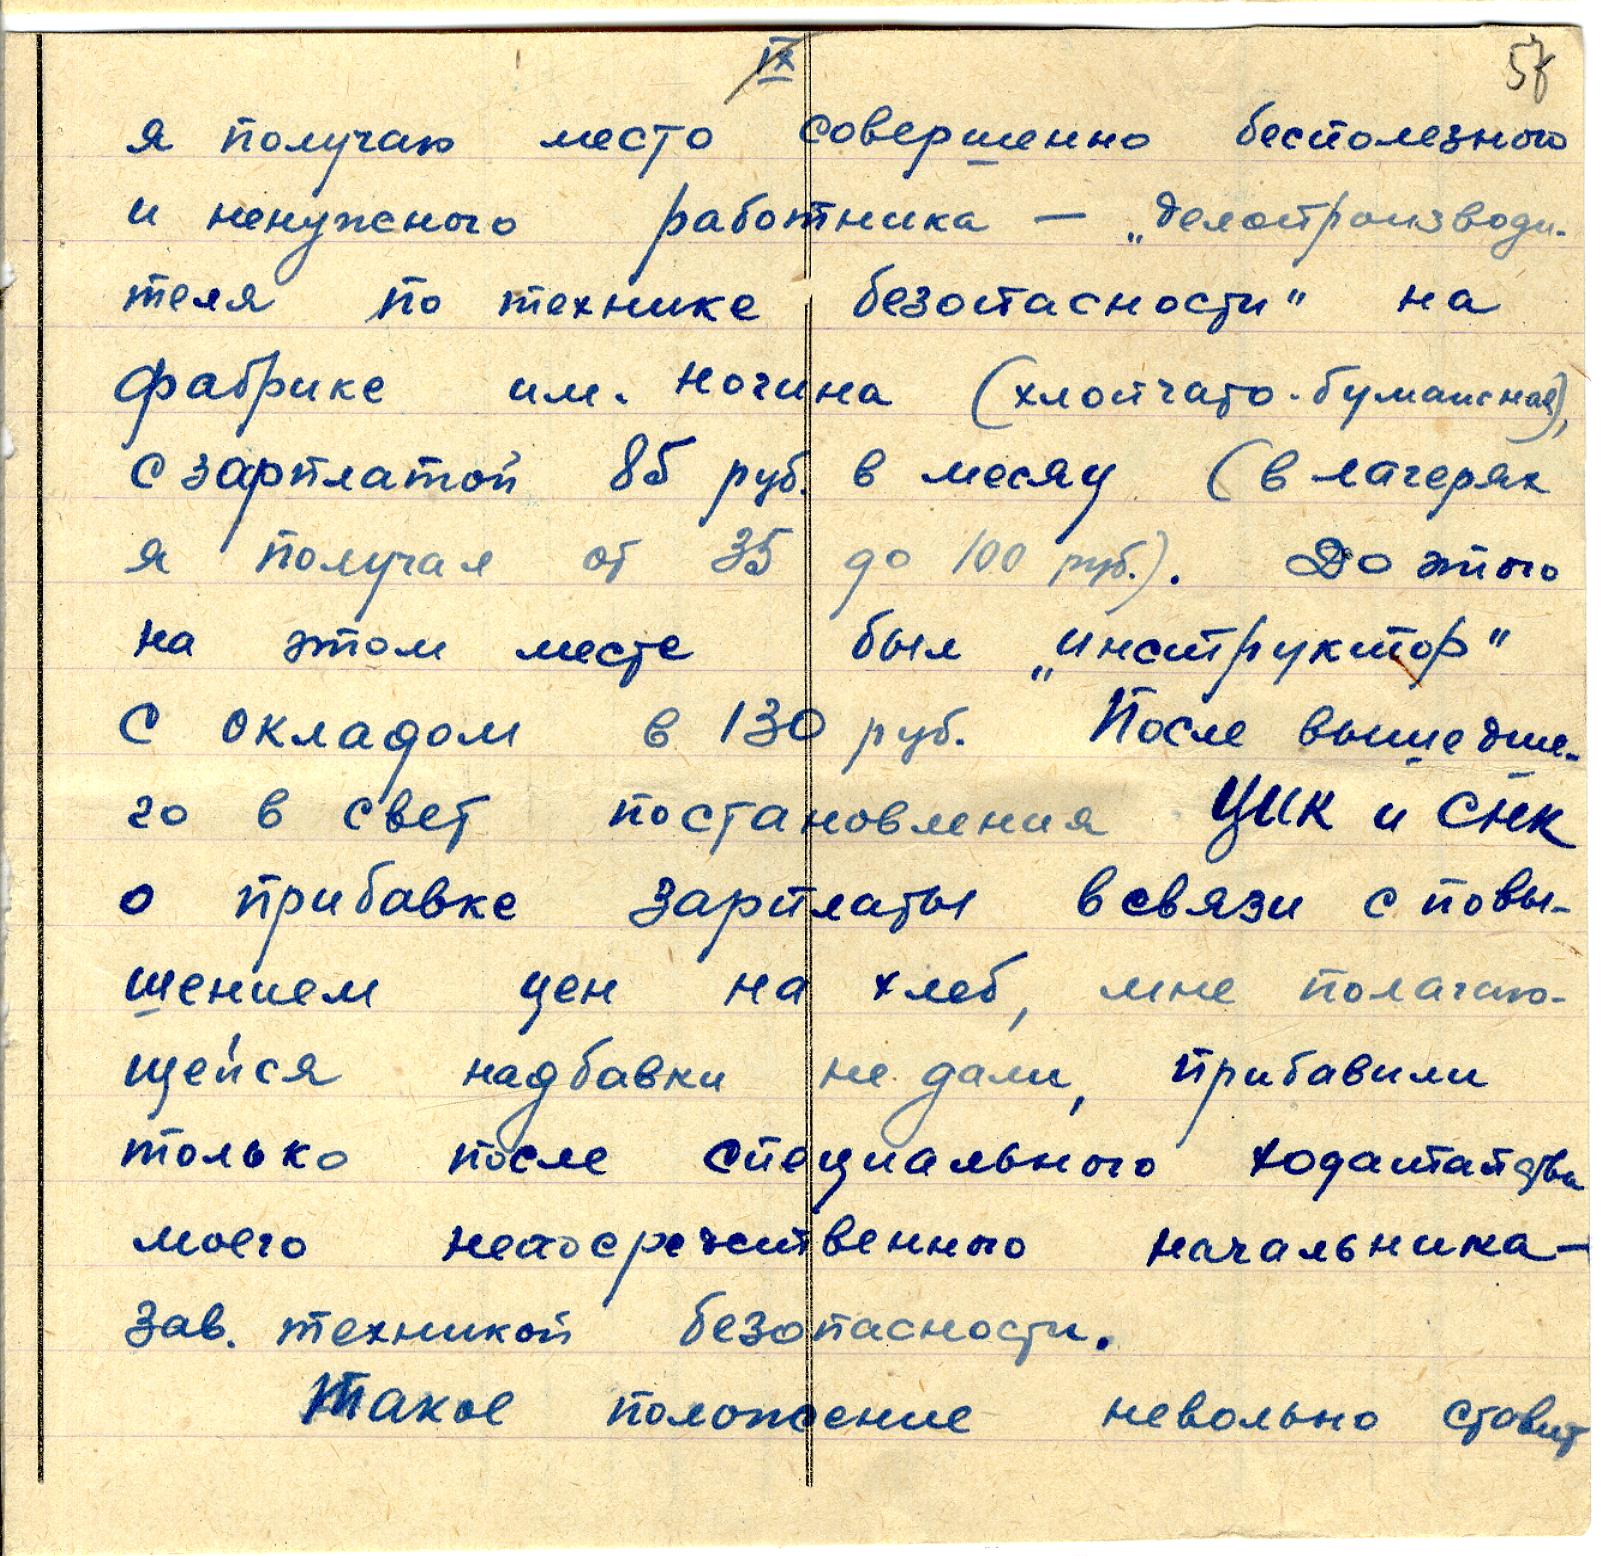 IX
я получаю место совершенно бесполезного
и ненужного работника — „делопроизводи-
теля по технике безопасности" на
фабрике им. Ногина (хлопчато-бумажная),
с зарплатой 85 руб. в месяц (в лагерях
я получал от 35 до 100 руб.). До этого
на этом месте был „инструктор"
с окладом в 130 руб. После вышедше-
го в свет постановления ЦИК и СНК
о прибавке зарплаты в связи с повы-
шением цен на хлеб, мне полагаю-
щейся надбавки не дали, прибавили
только после специального ходатайства
моего непосредственного начальника —
зав. техникой безопасности.
Такое положение невольно ставит